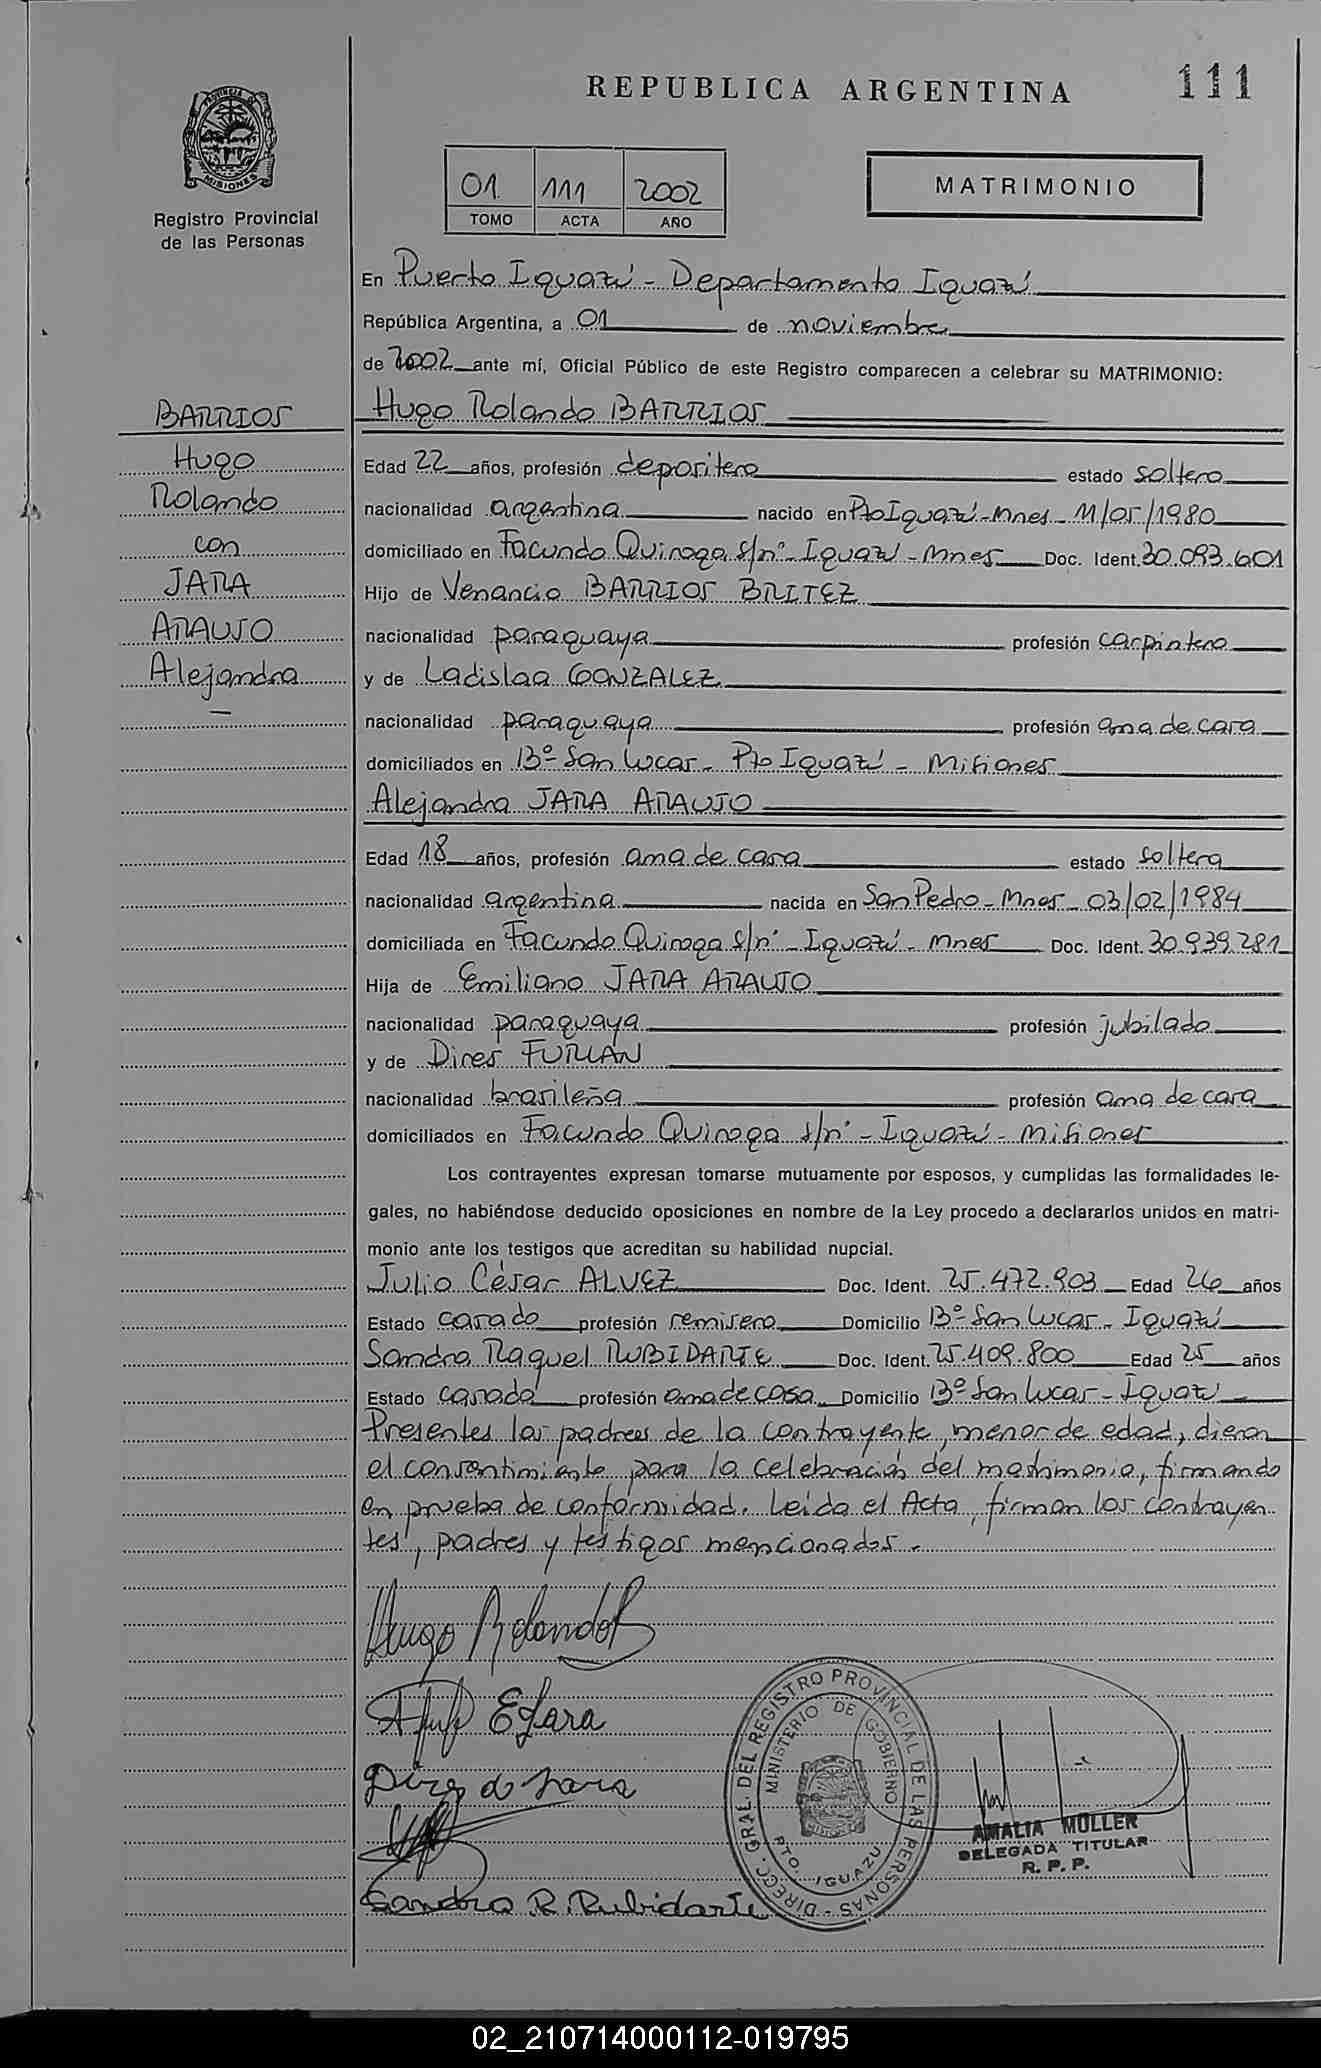 REPUBLICA ARGENTINA
111
PROVINCIA DE
MISIONES
Registro Provincial
de las Personas
01 111 2002
TOMO ACTA AÑO
MATRIMONIO
En Puerto Iguazú - Departamento Iguazú
República Argentina, a 01 de noviembre
de 2002 ante mí, Oficial Público de este Registro comparecen a celebrar su MATRIMONIO:
BARRIOS
Hugo
Rolando
con
JARA
ARAUJO
Alejandra
Hugo Rolando BARRIOS
Edad 22 años, profesión depositero estado soltero
nacionalidad argentina nacido en Pto Iguazú - Mnes - 11/05/1980
domiciliado en Facundo Quiroga s/nº - Iguazú - Mnes Doc. Ident. 30.093.601
Hijo de Venancio BARRIOS BRITEZ
nacionalidad paraguaya profesión carpintero
y de Ladislaa GONZALEZ
nacionalidad paraguaya profesión ama de casa
domiciliados en Bº San Lucas - Pto Iguazú - Misiones
Alejandra JARA ARAUJO
Edad 18 años, profesión ama de casa estado soltera
nacionalidad argentina nacida en San Pedro - Mnes - 03/02/1984
domiciliada en Facundo Quiroga s/nº - Iguazú - Mnes Doc. Ident. 30.939.281
Hija de Emiliano JARA ARAUJO
nacionalidad paraguaya profesión jubilado
y de Dires FURLAN
nacionalidad brasileña profesión ama de casa
domiciliados en Facundo Quiroga s/nº - Iguazú - Misiones
Los contrayentes expresan tomarse mutuamente por esposos, y cumplidas las formalidades le-
gales, no habiéndose deducido oposiciones en nombre de la Ley procedo a declararlos unidos en matri-
monio ante los testigos que acreditan su habilidad nupcial.
Julio César ALVEZ Doc. Ident. 25.472.903 Edad 26 años
Estado casado profesión remisero Domicilio Bº San Lucas - Iguazú
Sandra Raquel RUBIDARTE Doc. Ident. 25.409.800 Edad 25 años
Estado casada profesión ama de casa Domicilio Bº San Lucas - Iguazú
Presentes los padres de la contrayente, menor de edad, dieron
el consentimiento para la celebración del matrimonio, firmando
en prueba de conformidad. Leída el Acta, firman los contrayen-
tes, padres y testigos mencionados.
Hugo Rolando B
E Jara
Dires de Jara
Sandra R. Rubidarte
DIRECC. GRAL. DEL REGISTRO PROVINCIAL DE LAS PERSONAS
MINISTERIO DE GOBIERNO
PTO. IGUAZU
AMALIA MULLER
DELEGADA TITULAR
R. P. P.
02_210714000112-019795